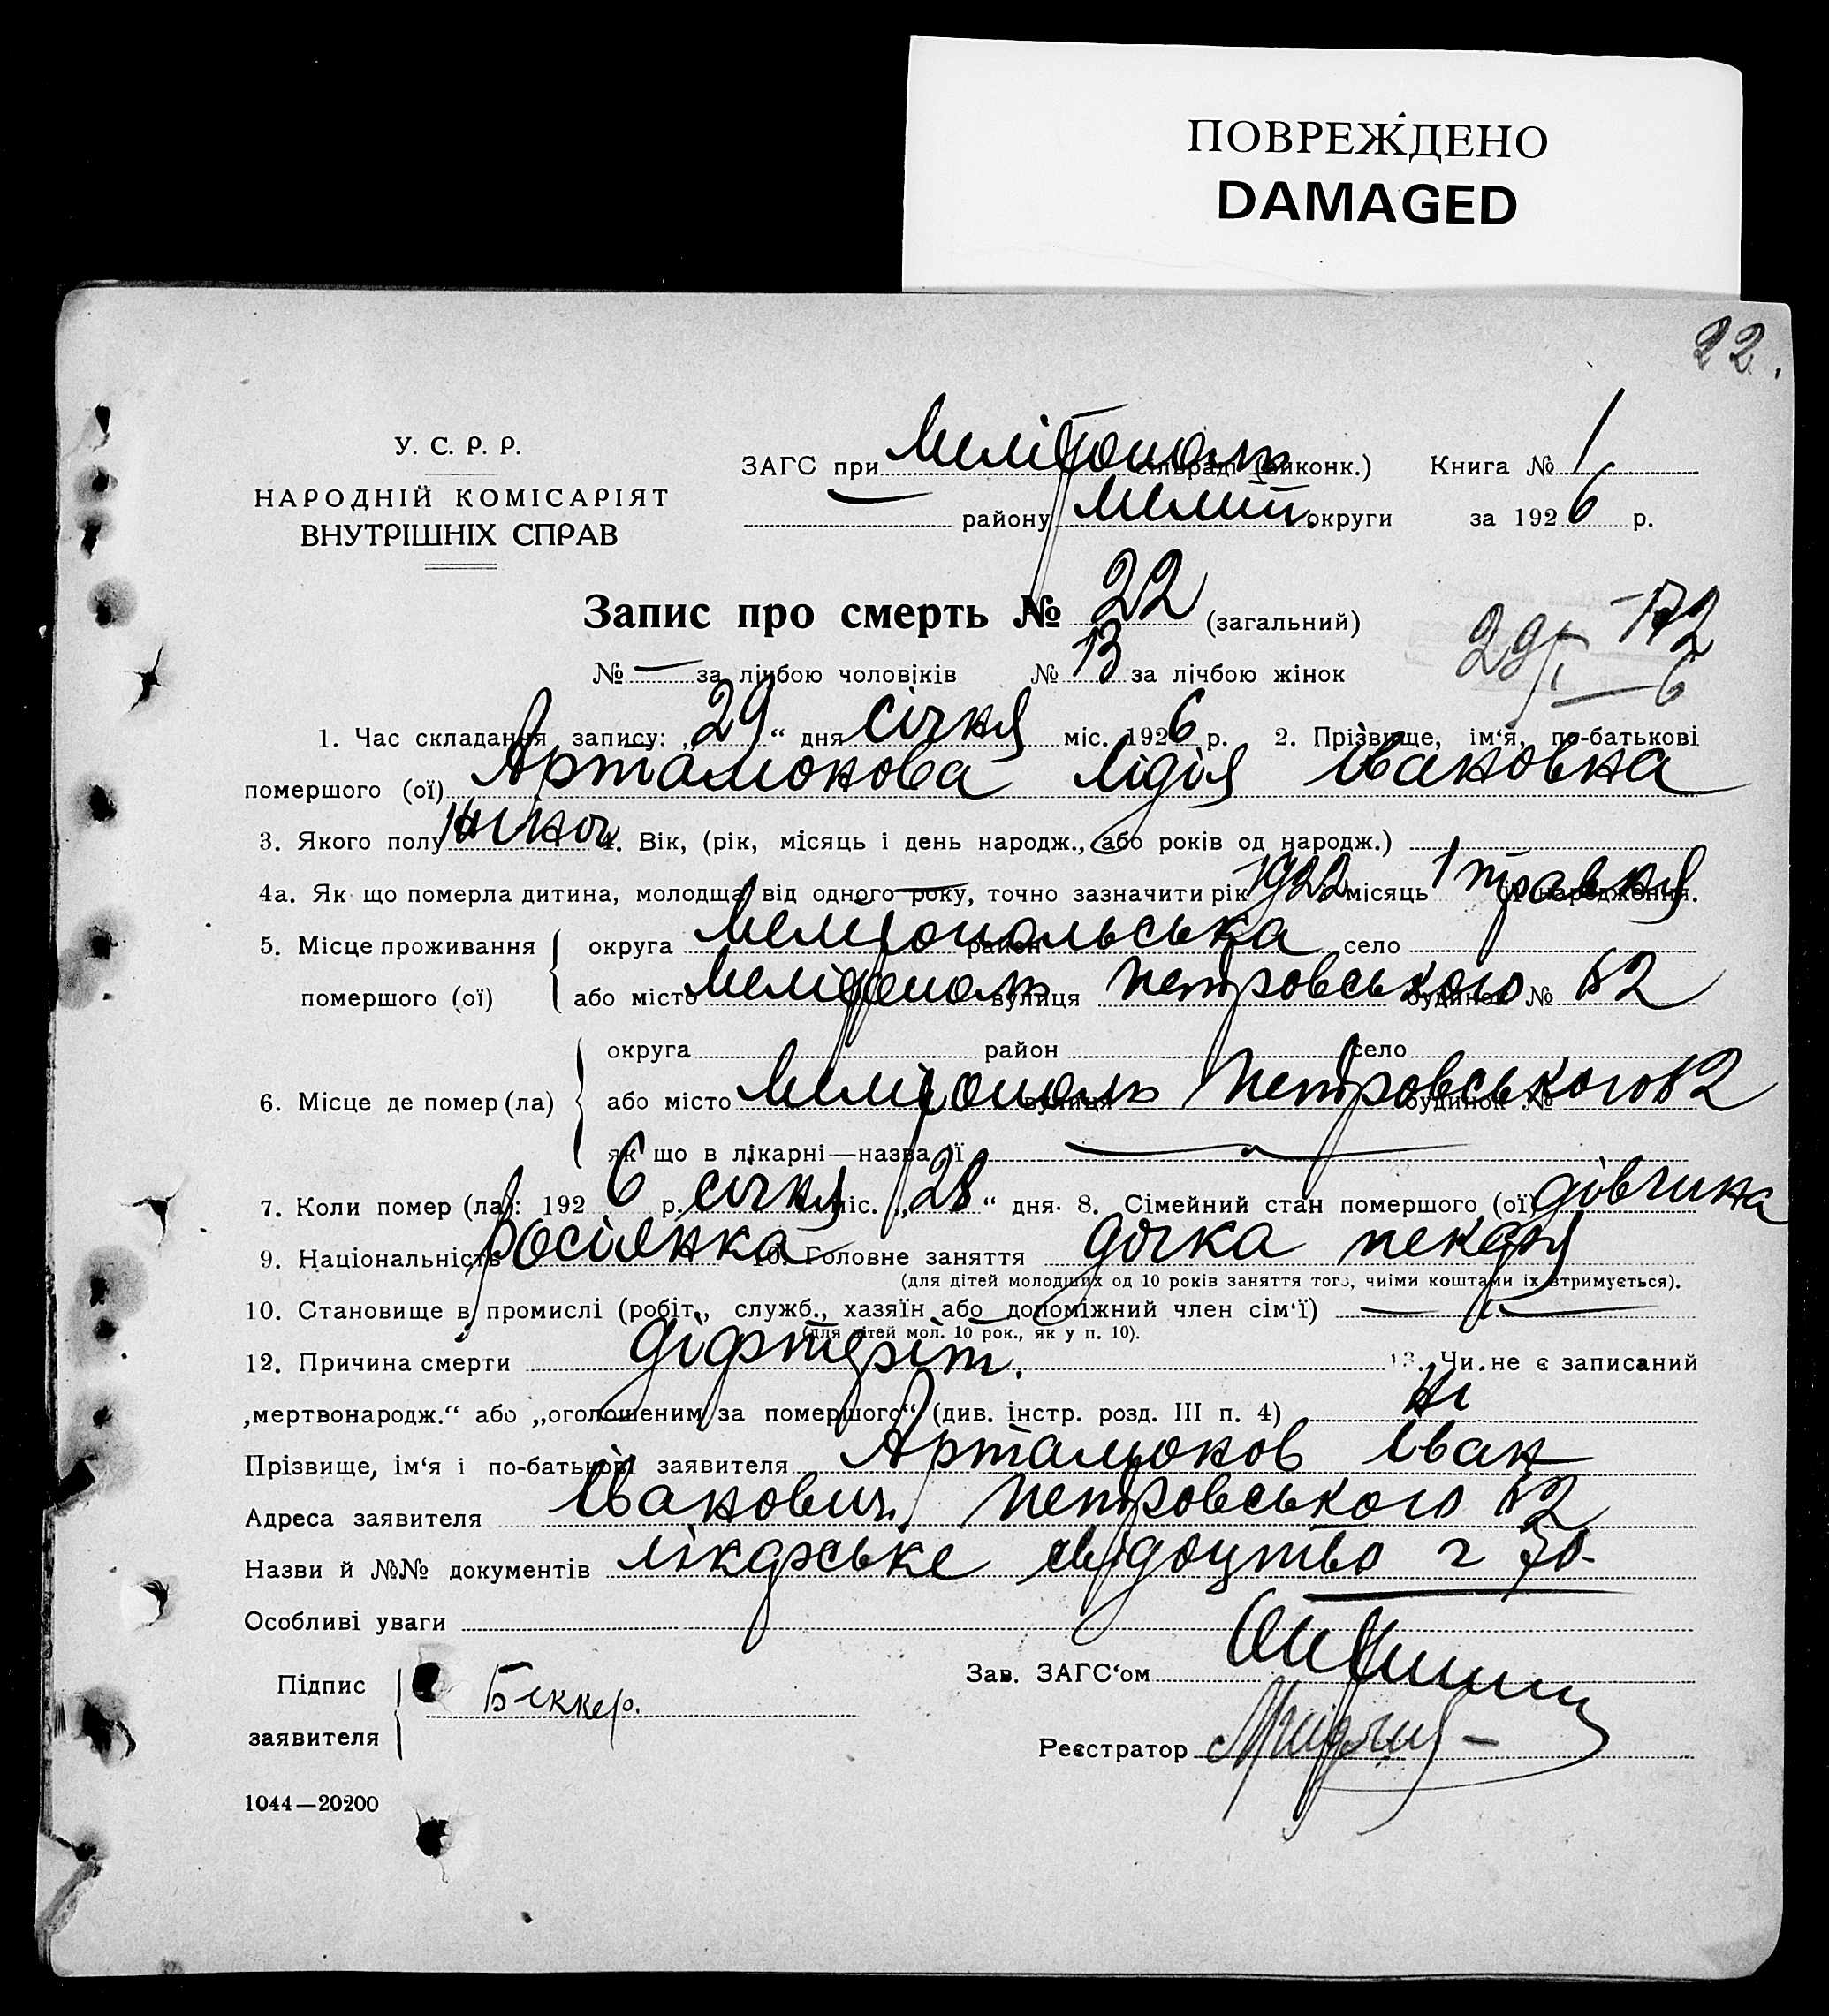 ПОВРЕЖДЕНО
DAMAGED
22.
У. С. Р. Р.
НАРОДНІЙ КОМІСАРІЯТ
ВНУТРІШНІХ СПРАВ
ЗАГС при Мелітополь сільраді (виконк.) Книга № 1
— району Меліт. округи за 1926 р.
Запис про смерть № 22 (загальний)
№ — за лічбою чоловіків № 13 за лічбою жінок
29/I — 6
1. Час складання запису: „29“ дня січня міс. 1926 р. 2. Прізвище, ім‘я, по-батькові
помершого (ої) Артамонова Лідія Івановна
3. Якого полу жіноч 4. Вік, (рік, місяць і день народж., або років од народж.)
4а. Як що померла дитина, молодща від одного року, точно зазначити рік 1922 і місяць 1 травня її народження.
5. Місце проживання округа Мелітопольська район село
помершого (ої) або місто Мелітополь вулиця Петровського будинок № 62
округа район село
6. Місце де помер (ла) або місто Мелітополь вулиця Петровського будинок № 62
як що в лікарні—назва її —
7. Коли помер (ла): 1926 р. січня міс. „28“ дня. 8. Сімейний стан помершого (ої) дівчина
9. Національність росіянка 10. Головне заняття дочка пекаря
(для дітей молодших од 10 років заняття того, чиїми коштами їх втримується).
10. Становище в промислі (робіт., служб., хазяїн або допоміжний член сім‘ї) —
(для дітей мол. 10 рок., як у п. 10).
12. Причина смерти діфтеріт. 13. Чи не є записаний
„мертвонародж.“ або „оголошеним за помершого“ (див. інстр. розд. III п. 4) ні
Прізвище, ім‘я і по-батькові заявителя Артамонов Іван
Адреса заявителя Іванович Петровського 62
Назви й №№ документів лікарське свідоцтво
Особливі уваги
Підпис
заявителя Беккер.
Зав. ЗАГС‘ом
Реєстратор
1044—20200